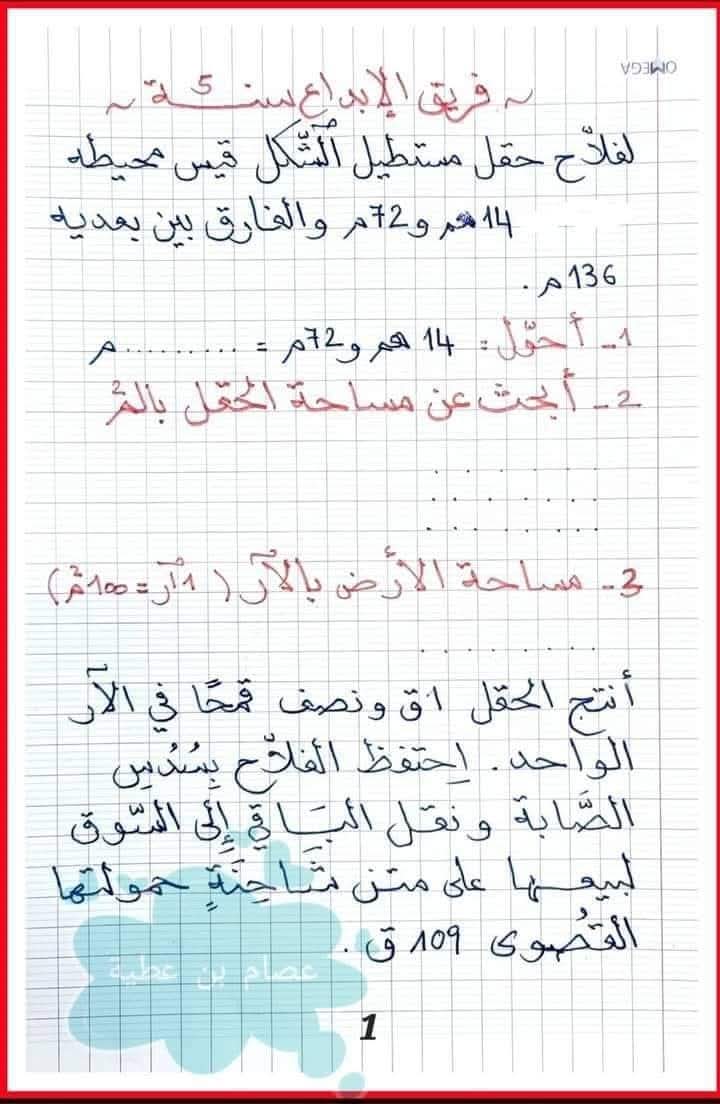 OMEGA
~ فريق الإبداع سنــة 5 ~
لفلاّح حقل مستطيل الشّكل قيس محيطه
14 هم و 72م والفارق بين بعديه
136 م .
1- أحوّل : 14 هم و 72م = .......... م
2- أبحث عن مساحة الحقل بالم²
. . . . . .
. . . . . . .
. . . . . . .
3- مساحة الأرض بالآر ( 1آر = 100م²)
. . . . . . . . .
أنتج الحقل 1ق ونصف قمحًا في الآر
الواحد . اِحتفظ الفلاّح بِسُدُسِ
الصَّابة ونقل البَاقِي إِلَى السّوق
لبيعـها على متن شَاحِنَةٍ حمولتها
القُصوى 109 ق .
عصام بن عطية
1